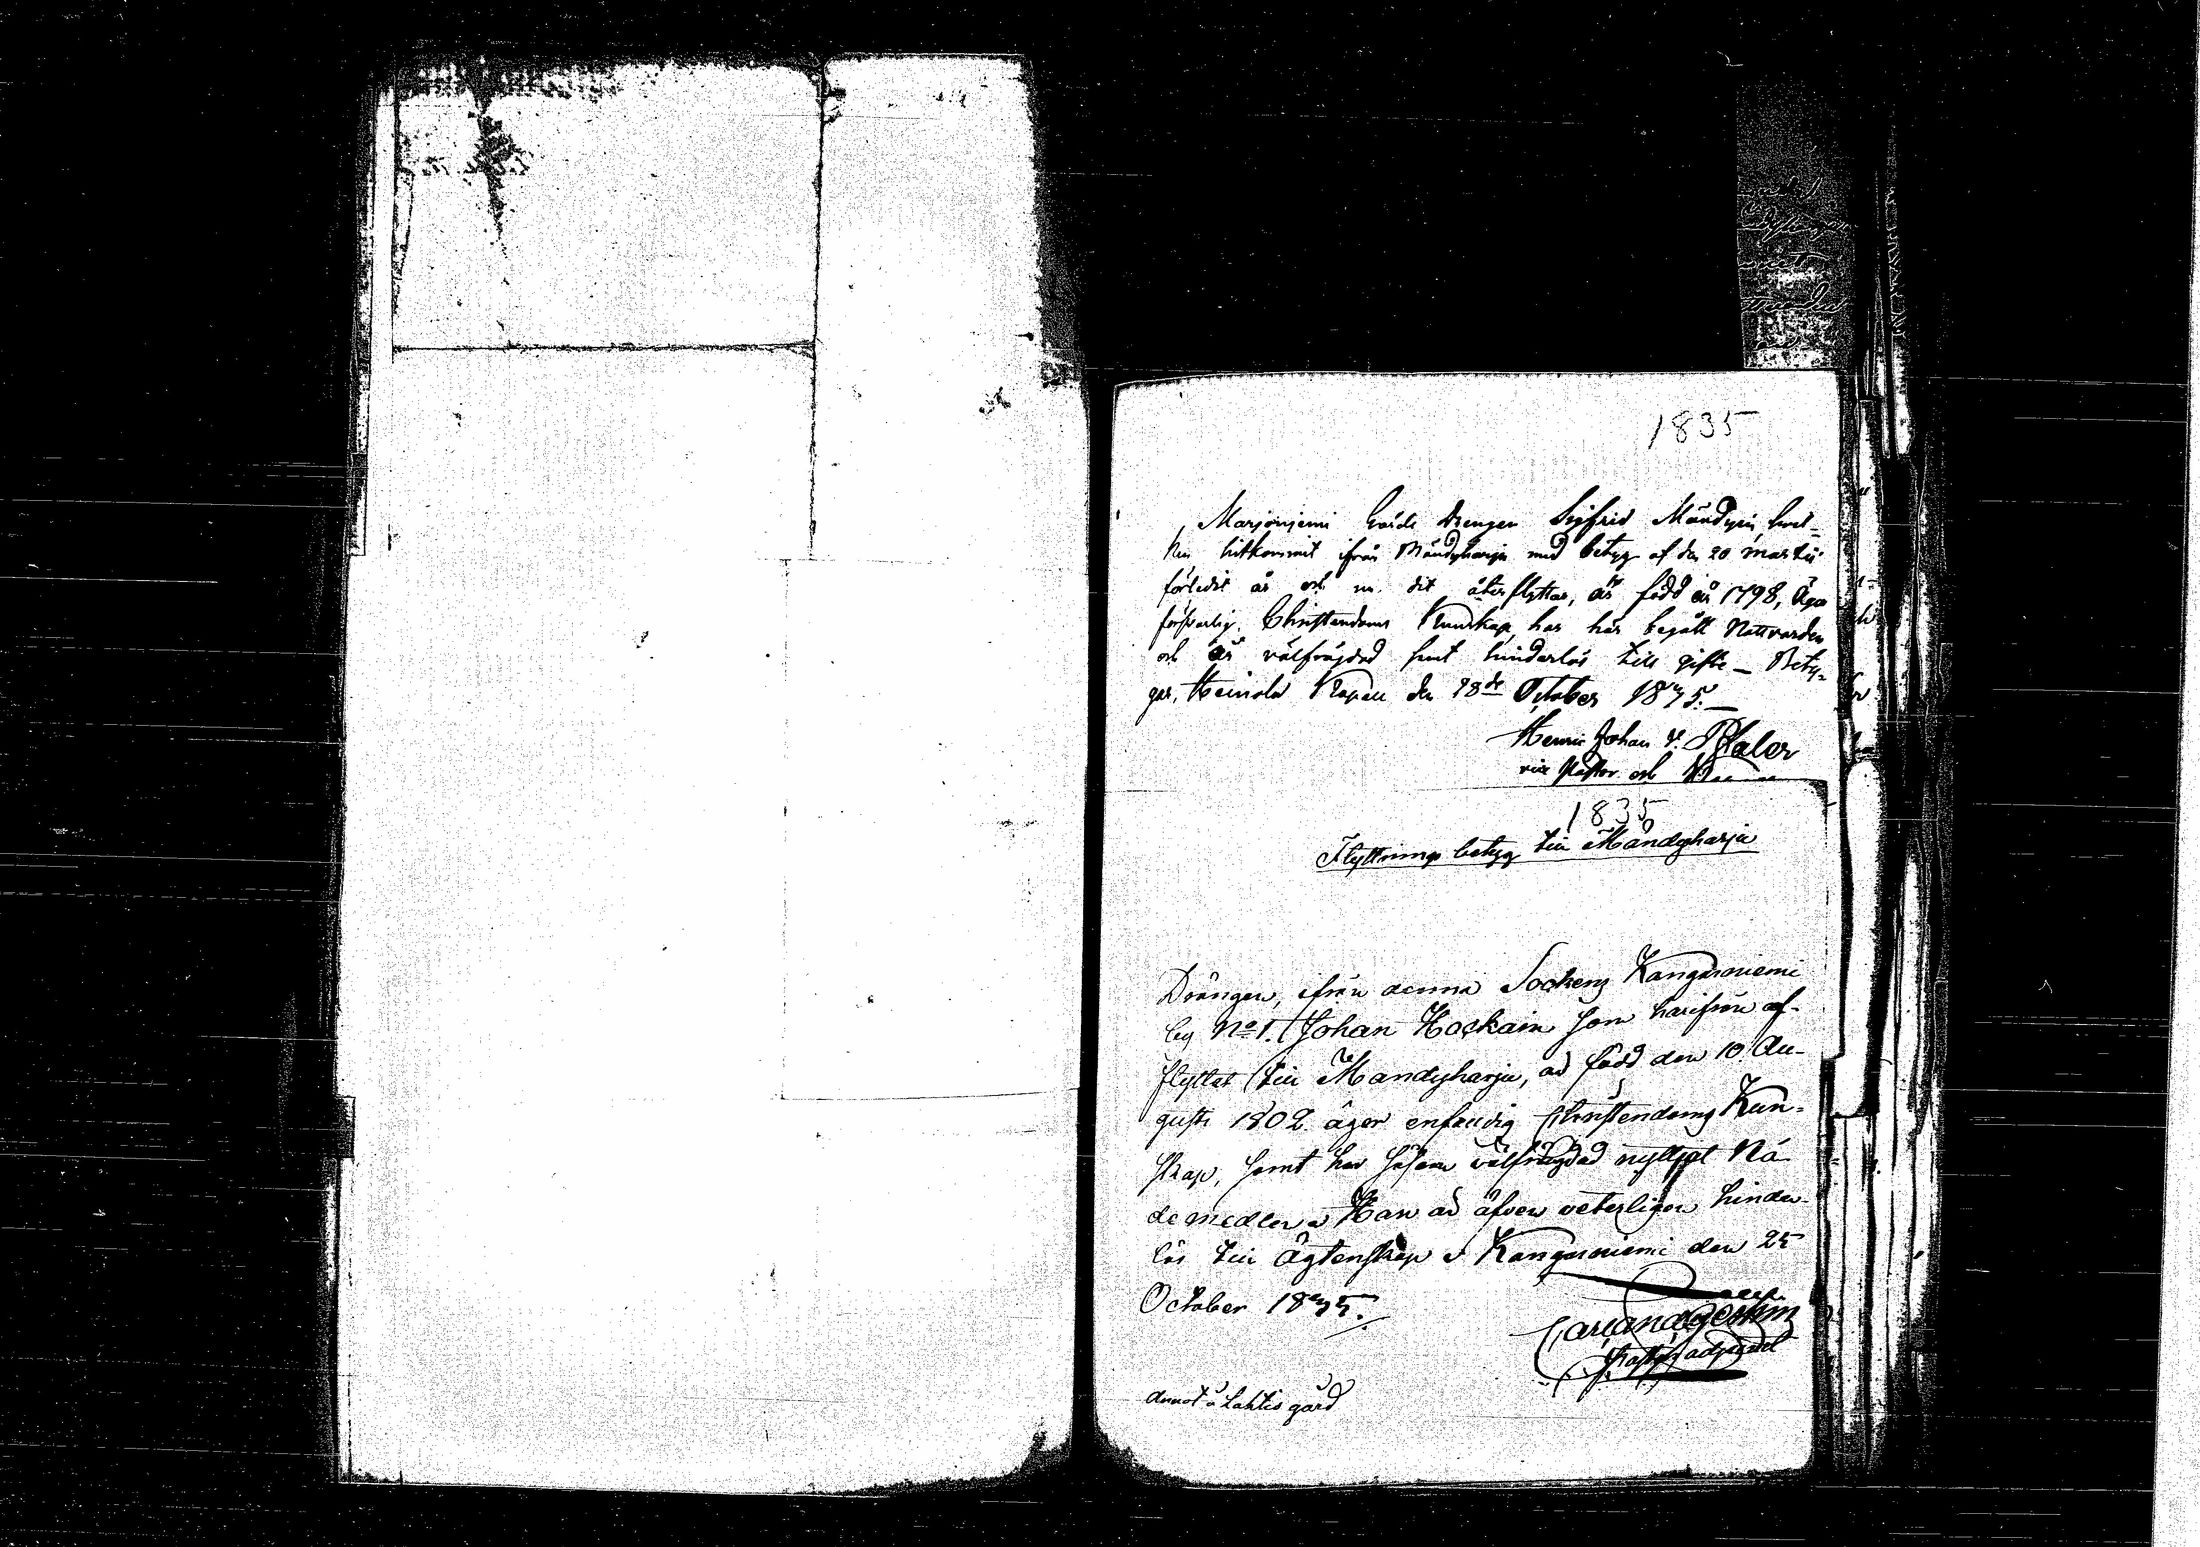 1835
Marjoniemi Gårds Drengen Sigfrid Mändyin, hvil-
ken hitkommit ifrån Mändyharju med betyg af den 20 Martii
förledit år och nu dit återflyttar, är född år 1798, Äger
försvarlig Christendoms Kunskap, har här begått Nattvarden
och är välfrägdad samt hinderlös till gifte – Bety-
gar, Heinola Kapell den 28de October 1835.
Henric Johan
vice Pastor och
1835
Flyttnings betyg till Mändyharju
Drängen, ifrån denna Sockens Kangasniemi
by No 1. Johan Hockain som härifrån af-
flyttat till Mandyharju, är född den 10 Au-
gusti 1802. äger enfaldig Christendoms Kun-
skap, samt har såsom välfrägdad nyttjat Nå-
demedlen. Han är äfven veterligen hinder-
lös till Ägtenskap. Kangasniemi den 25
October 1835.
adjunct
Annot å Lahtis gård